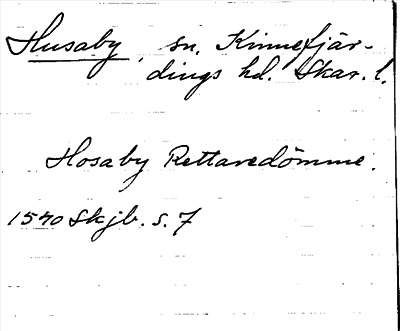 Husaby, sn. Kinnefjär-
dings hd. Skar. l.
Hosaby Rettaredömme.
1540 Skjb. s. 7